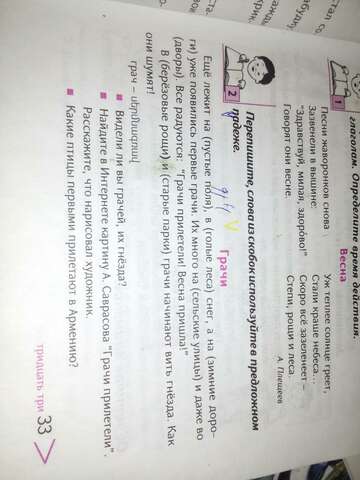 глаголам. Определите время действия.
1
Весна
Песни жаворонков снова
Зазвенели в вышине:
"Здравствуй, милая, здорово!" -
Говорят они весне.
Уж теплее солнце греет,
Стали краше небеса...
Скоро всё зазеленеет -
Степи, рощи и леса.
А. Плещеев
2
Перепишите, слова из скобок используйте в предложном
падеже.
Грачи
Ещё лежит на (пустые поля), в (голые леса) снег, а на (зимние доро-
ги) уже появились первые грачи. Их много на (сельские улицы) и даже во
(дворы). Все радуются: "Грачи прилетели! Весна пришла!"
В (берёзовые рощи) и (старые парки) грачи начинают вить гнёзда. Как
они шумят!
грач –
Видели ли вы грачей, их гнёзда?
Найдите в Интернете картину А. Саврасова "Грачи прилетели".
Расскажите, что нарисовал художник.
Какие птицы первыми прилетают в Армению?
тридцать три 33